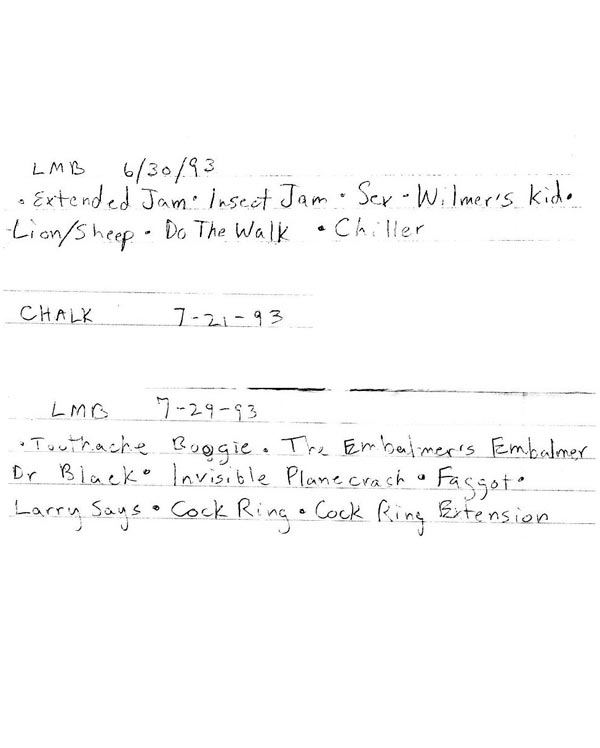 LMB 6/30/93
• Extended Jam • Insect Jam • Sex • Wilmer's Kid •
Lion/Sheep • Do The Walk • Chiller
CHALK 7-21-93
LMB 7-29-93
• Toothache Boogie • The Embalmer's Embalmer
Dr Black • Invisible Planecrash • Faggot •
Larry Says • Cock Ring • Cock Ring Extension